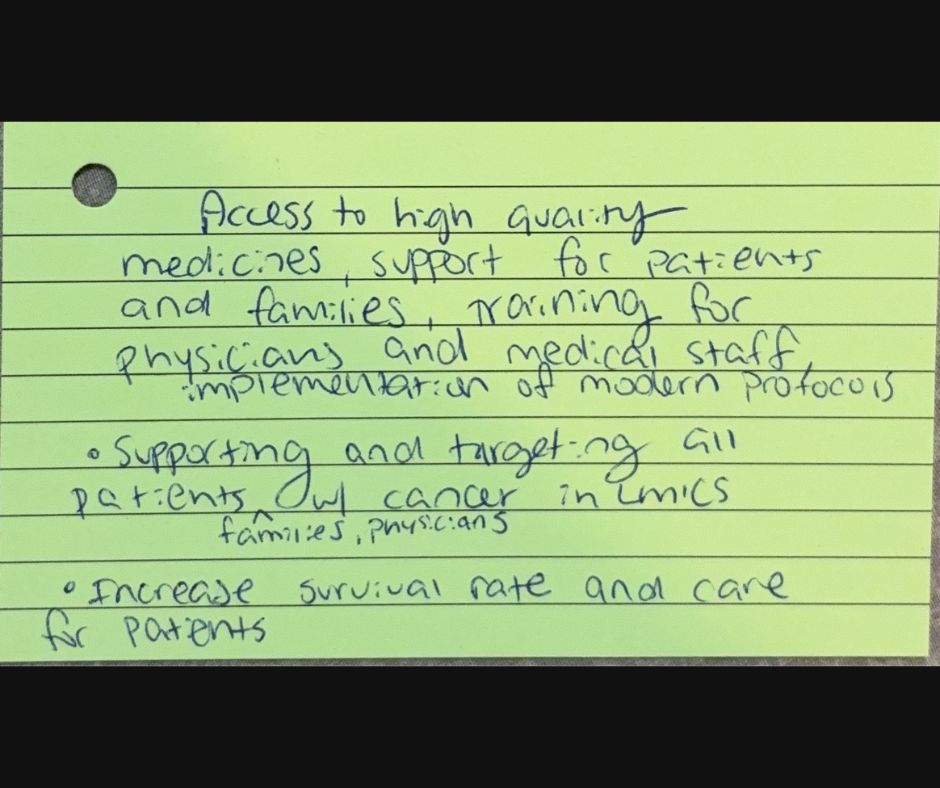 Access to high quality
medicines, support for patients
and families, training for
physicians and medical staff,
implementation of modern protocols
• Supporting and targeting all
patients ^ w/ cancer in LMICS
families, physicians
• Increase survival rate and care
for patients